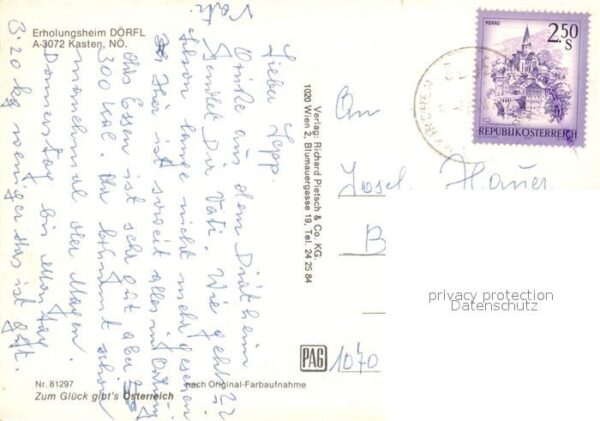 Erholungsheim DÖRFL
A-3072 Kasten, NÖ.
Lieber Sepp.
Grüße aus dem Diätheim
sendet Dir Vati. Wie geht's??
Schon lange nicht mehr gesehen
Hier ist soweit alles in Ordnung
das Essen ist sehr gut aber
300 kal. Da brummt schon
manchmal der Magen.
Donnerstag bis Montag
3.20 kg weniger das ist gut.
Vati
Verlag: Richard Pietsch & Co. KG.
1020 Wien 2, Blumauergasse 19, Tel. 24 25 84
PAG
Nr. 81297
nach Original-Farbaufnahme
Zum Glück gibt's Österreich
MURAU
2.50
S
REPUBLIK ÖSTERREICH
An
Josef Hauer
B
1070
privacy protection
Datenschutz